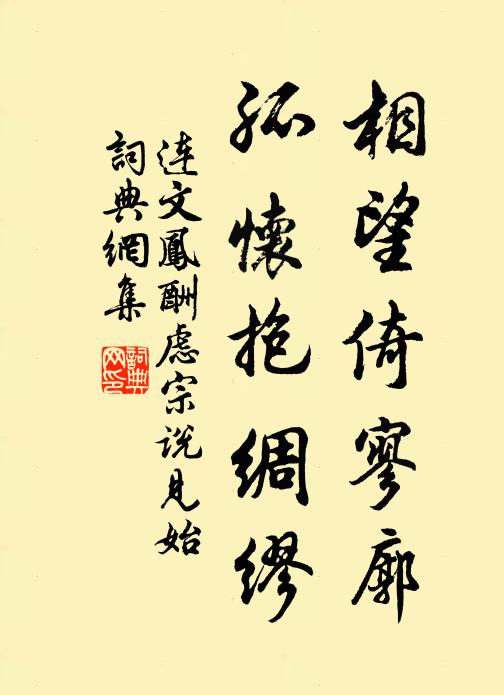 相望倚寥廓
孤懷抱綢繆
連文鳳酬慮宗說見始
詞典網集
詞典
网印